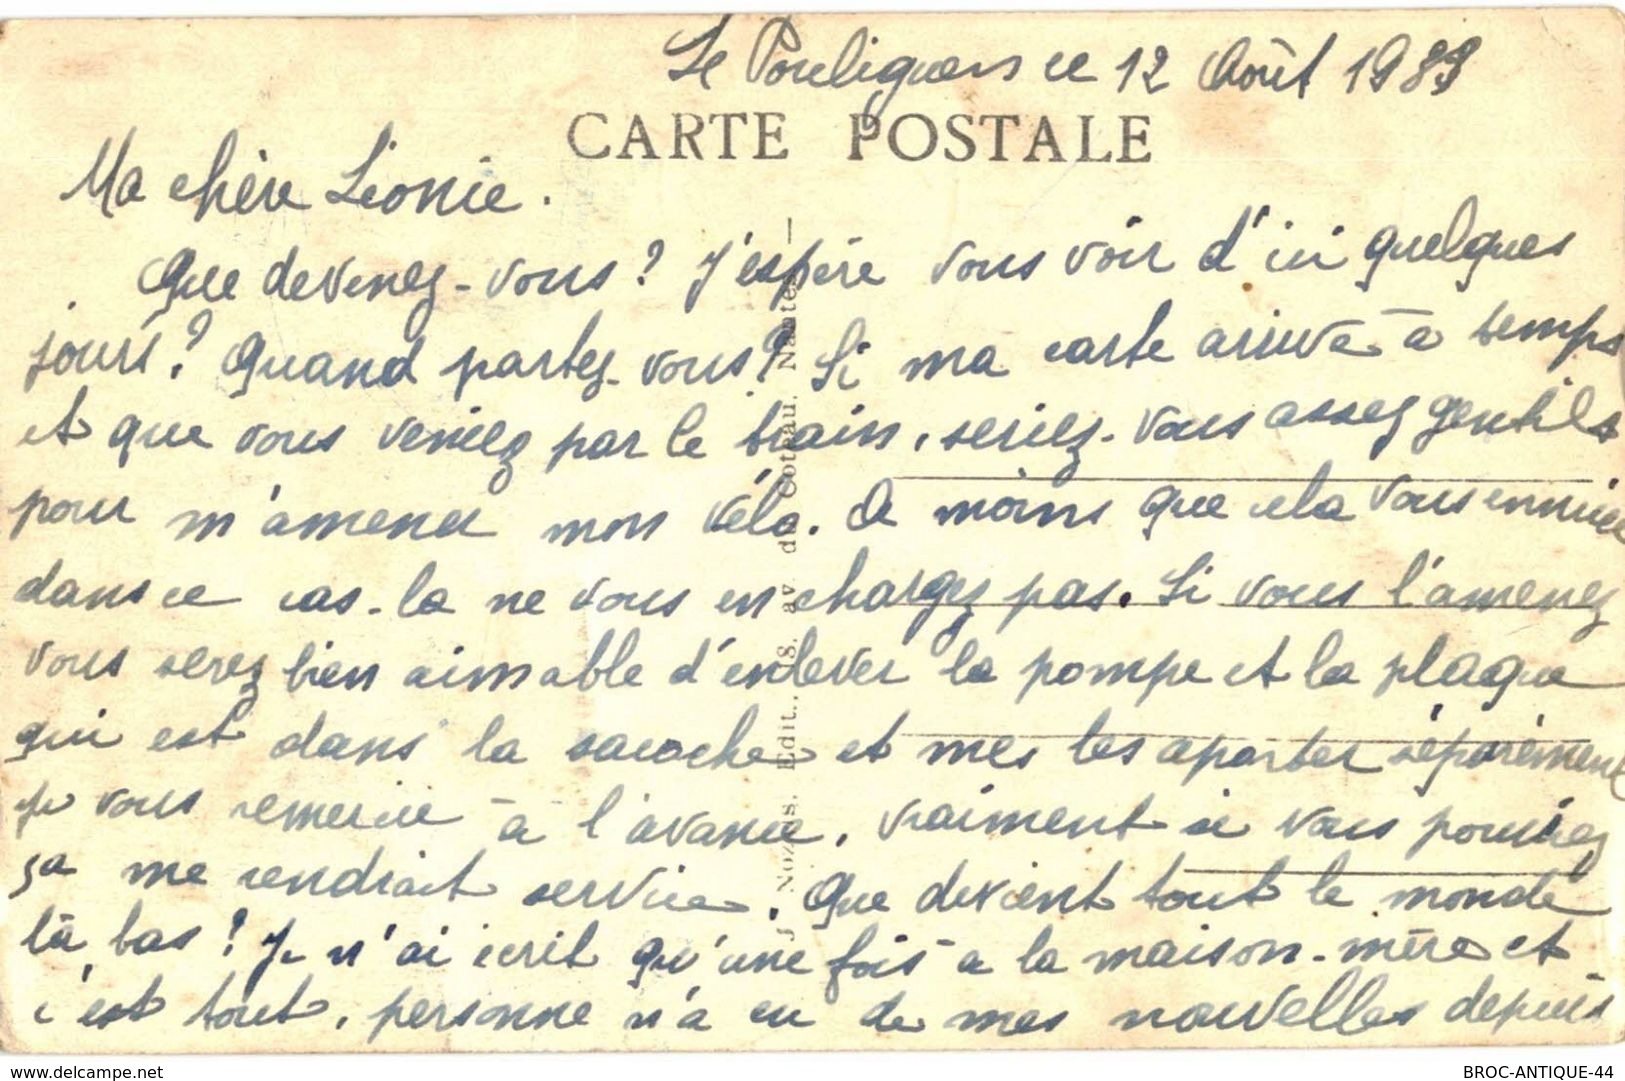 Le Pouliguen ce 12 Août 1933
CARTE POSTALE
Ma chère Léonie.
Que devenez-vous? J'espère vous voir d'ici quelques
jours? Quand partez-vous? Si ma carte arrive à temps
et que vous veniez par le train, seriez-vous assez gentils
pour m'amener mon vélo. A moins que cela vous ennuie
dans ce cas-la ne vous en chargez pas. Si vous l'amenez
vous serez bien aimable d'enlever la pompe et la plaque
qui est dans la sacoche et mes les aporter séparément
Je vous remercie à l'avance, vraiment si vous pouviez
ça me rendrait service. Que devient tout le monde
là bas? Je n'ai écrit qu'une fois à la maison-mère et
c'est tout, personne n'a eu de mes nouvelles depuis
J Nozais, Edit., 18, av. du Coteau, Nantes
delcampe.net
BROC-ANTIQUE-44